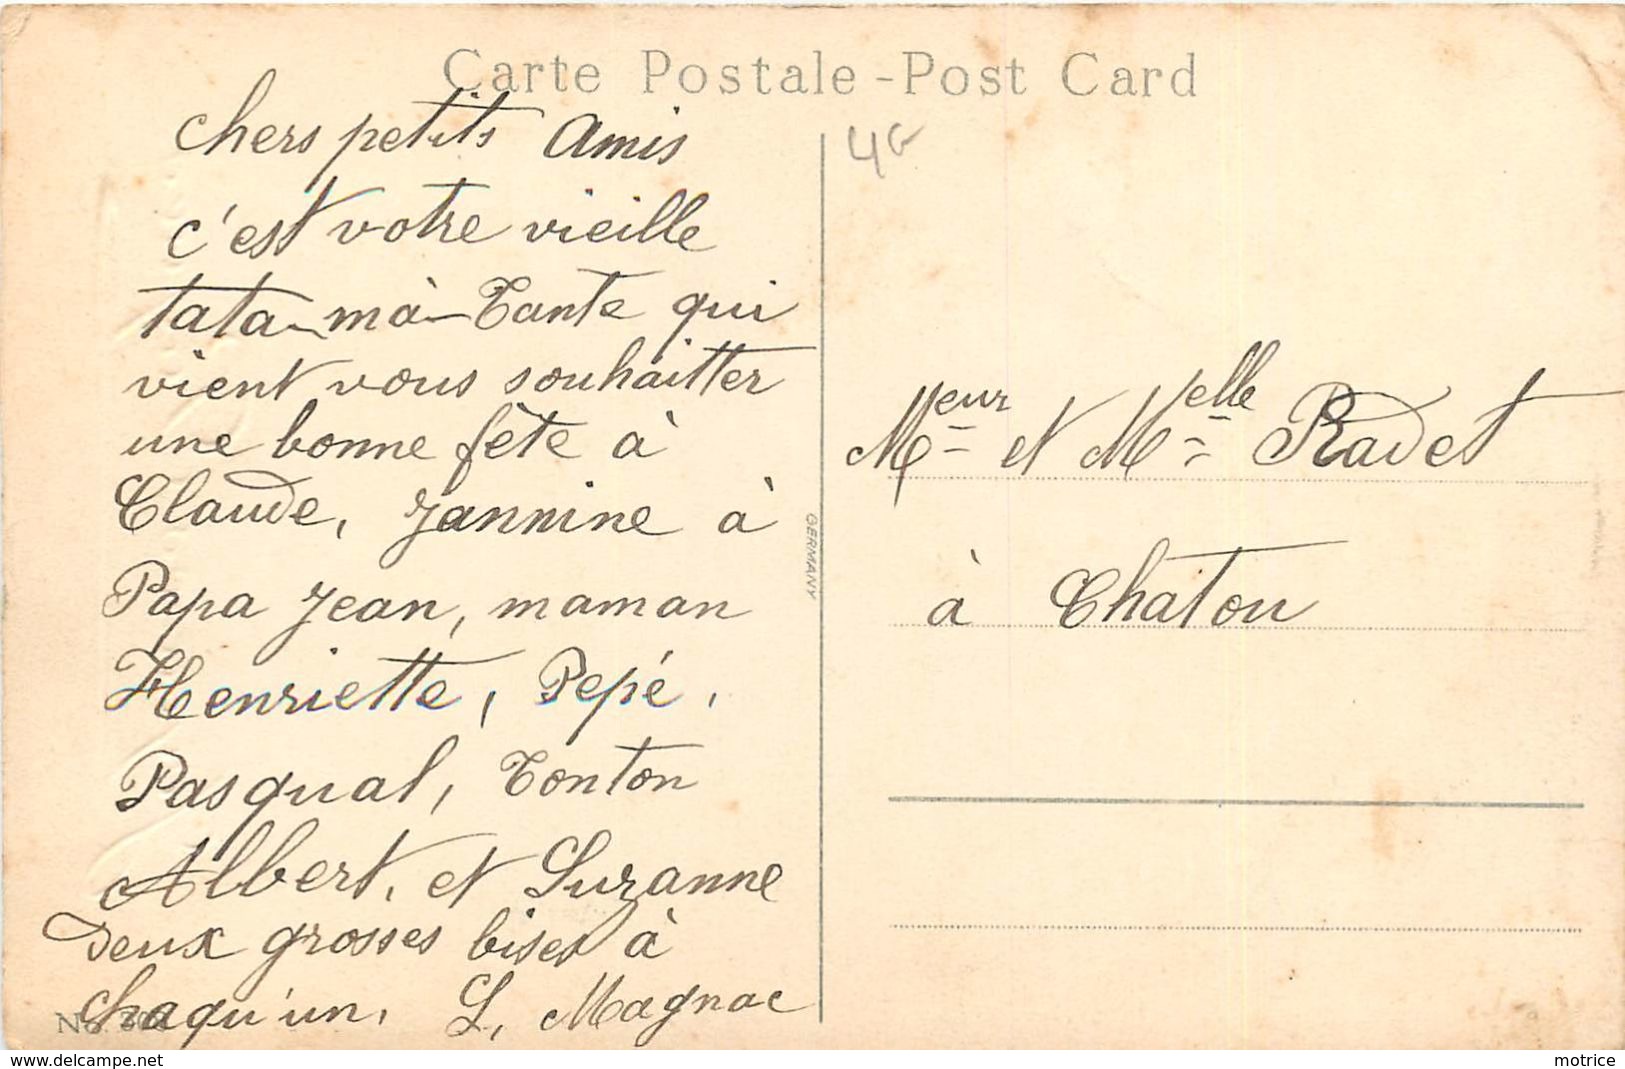 Carte Postale - Post Card
4G
chers petits Amis
c'est votre vieille
tata-mà-Tante qui
vient vous souhaitter
une bonne fête à
Claude, Jannine à
Papa Jean, maman
Henriette, Pepé,
Pasqual, Tonton
Albert, et Suzanne
deux grosses bises à
chaqu'un. L, Magnac
No
GERMANY
Meur et Melle Radet
à Chatou
delcampe.net
motrice